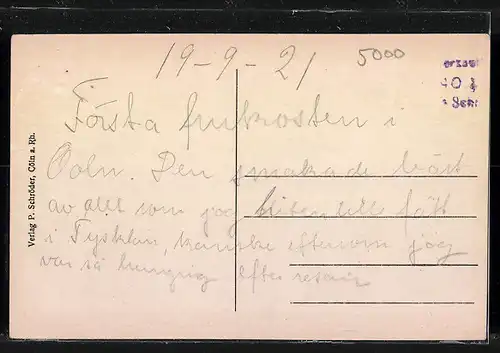 19-9-21
5000
Första frukosten i
Coln. Den smakade bäst
av allt som jag hitentill fått
i Tyskland, kanske eftersom jag
var så hungrig efter resan
Verlag P. Schröder, Cöln a. Rh.